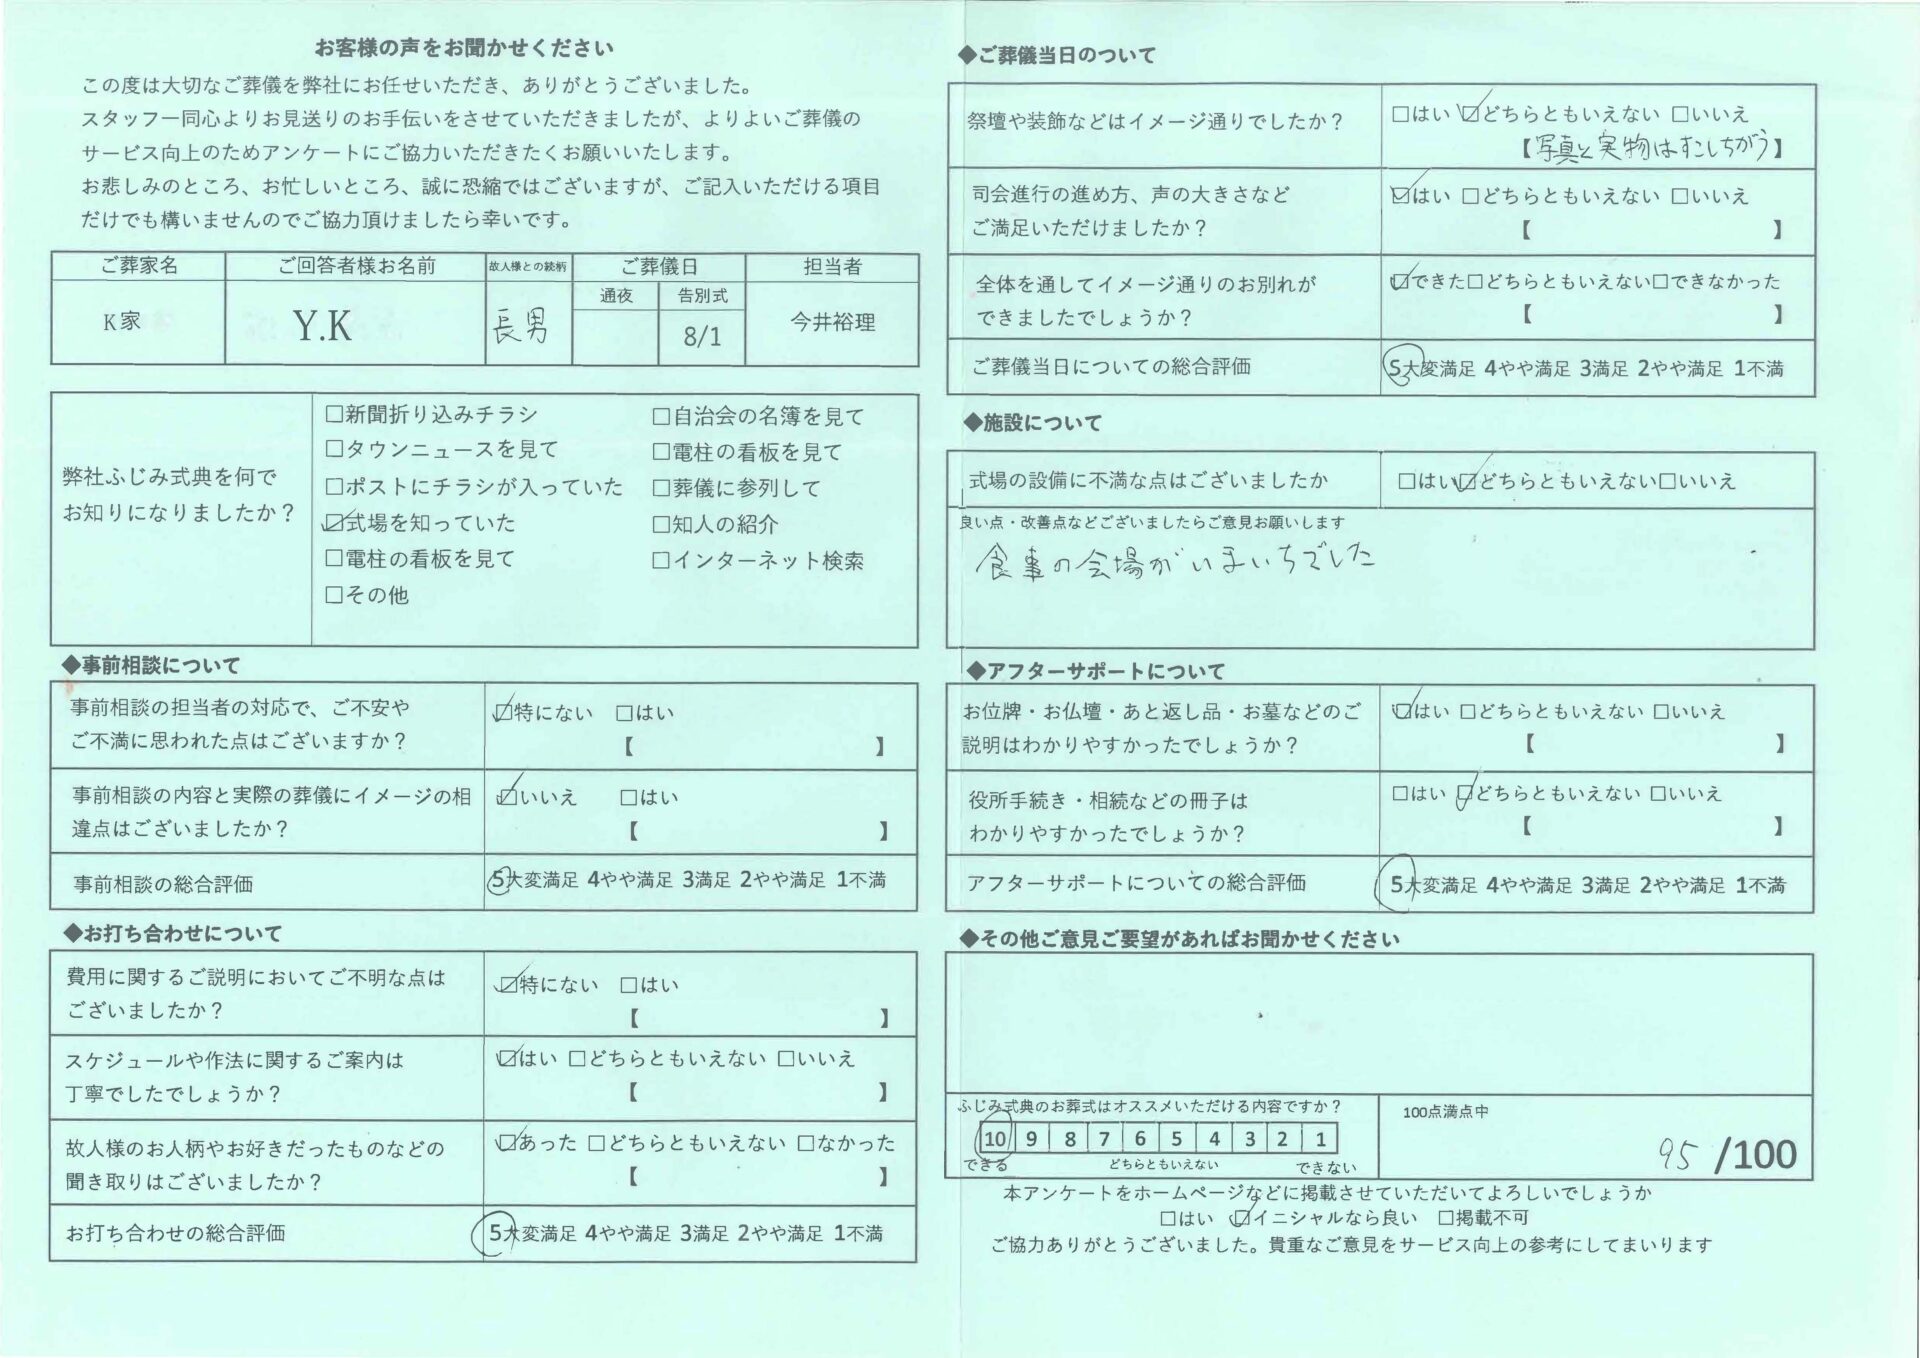 お客様の声をお聞かせください
この度は大切なご葬儀を弊社にお任せいただき、ありがとうございました。
スタッフ一同心よりお見送りのお手伝いをさせていただきましたが、よりよいご葬儀の
サービス向上のためアンケートにご協力いただきたくお願いいたします。
お悲しみのところ、お忙しいところ、誠に恐縮ではございますが、ご記入いただける項目
だけでも構いませんのでご協力頂けましたら幸いです。
ご葬家名 ご回答者様お名前 故人様との続柄 ご葬儀日 担当者
通夜 告別式
K家 Y.K 長男 8/1 今井裕理
弊社ふじみ式典を何で
お知りになりましたか？
□新聞折り込みチラシ □自治会の名簿を見て
□タウンニュースを見て □電柱の看板を見て
□ポストにチラシが入っていた □葬儀に参列して
☑式場を知っていた □知人の紹介
□電柱の看板を見て □インターネット検索
□その他
◆事前相談について
事前相談の担当者の対応で、ご不安や
ご不満に思われた点はございますか？
☑特にない □はい
【 】
事前相談の内容と実際の葬儀にイメージの相
違点はございましたか？
☑いいえ □はい
【 】
事前相談の総合評価 5大変満足 4やや満足 3満足 2やや満足 1不満
◆お打ち合わせについて
費用に関するご説明においてご不明な点は
ございましたか？
☑特にない □はい
【 】
スケジュールや作法に関するご案内は
丁寧でしたでしょうか？
☑はい □どちらともいえない □いいえ
【 】
故人様のお人柄やお好きだったものなどの
聞き取りはございましたか？
☑あった □どちらともいえない □なかった
【 】
お打ち合わせの総合評価 5大変満足 4やや満足 3満足 2やや満足 1不満
◆ご葬儀当日のついて
祭壇や装飾などはイメージ通りでしたか？
□はい ☑どちらともいえない □いいえ
【写真と実物はすこしちがう】
司会進行の進め方、声の大きさなど
ご満足いただけましたか？
☑はい □どちらともいえない □いいえ
【 】
全体を通してイメージ通りのお別れが
できましたでしょうか？
☑できた□どちらともいえない□できなかった
【 】
ご葬儀当日についての総合評価 5大変満足 4やや満足 3満足 2やや満足 1不満
◆施設について
式場の設備に不満な点はございましたか □はい☑どちらともいえない□いいえ
良い点・改善点などございましたらご意見お願いします
食事の会場がいまいちでした
◆アフターサポートについて
お位牌・お仏壇・あと返し品・お墓などのご
説明はわかりやすかったでしょうか？
☑はい □どちらともいえない □いいえ
【 】
役所手続き・相続などの冊子は
わかりやすかったでしょうか？
□はい ☑どちらともいえない □いいえ
【 】
アフターサポートについての総合評価 5大変満足 4やや満足 3満足 2やや満足 1不満
◆その他ご意見ご要望があればお聞かせください
ふじみ式典のお葬式はオススメいただける内容ですか？
10 9 8 7 6 5 4 3 2 1
できる どちらともいえない できない
100点満点中
95 /100
本アンケートをホームページなどに掲載させていただいてよろしいでしょうか
□はい ☑イニシャルなら良い □掲載不可
ご協力ありがとうございました。貴重なご意見をサービス向上の参考にしてまいります